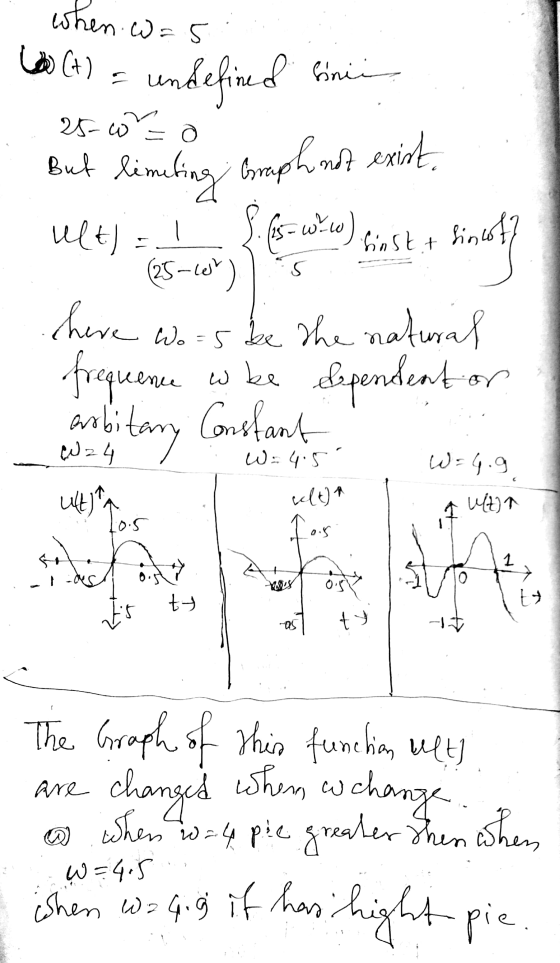 when ω = 5
u(t) = undefined since
25-ω² = 0
But limiting Graph not exist.
u(t) = 1/(25-ω²) { (25-ω²-ω)/5 sin5t + sinωt }
here ω₀ = 5 be the natural
frequence ω be dependent or
arbitary Constant
ω=4 ω=4.5 ω=4.9
u(t)↑ u(t)↑ 1 u(t)↑
0.5 0.5
-1 -0.5 0.5 1 0.5 -1 0 1
-.5 t→ -0.5 t→ -1 t→
The Graph of this function u(t)
are changed when ω change.
when ω=4 pic greater then when
ω=4.5
when ω=4.9 it has hight pic.